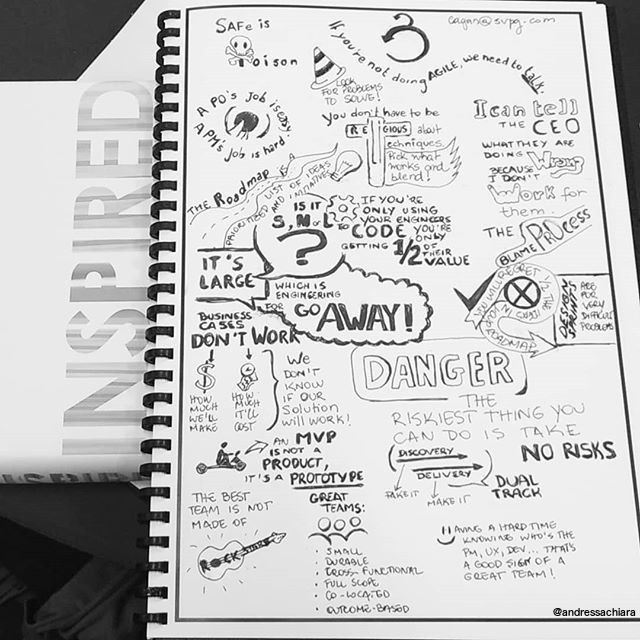 INSPIRED
SAFe is
Poison
cagan@svpg.com
If you're not doing AGILE, we need to talk.
LOOK
FOR PROBLEMS
TO SOLVE!
A PO's job is easy.
A PM's job is hard.
you don't have to be
RELIGIOUS about
techniques.
Pick what
works and
blend!
I can tell
THE CEO
WHAT THEY ARE
DOING Wrong
BECAUSE
I DON'T
Work for
them.
THE Roadmap IS A
PRIORITIZED LIST OF IDEAS
AND INITIATIVES
IS IT
S, M or L
?
IF YOU'RE
ONLY USING
YOUR ENGINEERS
TO CODE YOU'RE
ONLY
GETTING 1/2 OF
THEIR
VALUE
BLAME THE PROCESS
IT'S
LARGE
WHICH IS
ENGINEERING
FOR GO AWAY!
YOU WILL REGRET
ALL
ROADMAP
DESIGN
SPRINTS
ARE
FOR
VERY
DIFFICULT
PROBLEMS
BUSINESS
CASES
DON'T WORK
HOW
MUCH
WE'LL
MAKE
HOW
MUCH
IT'LL
COST
We
DON'T
KNOW
IF OUR
Solution
will WORK!
DANGER
THE
RISKIEST THING YOU
CAN DO IS TAKE
NO RISKS
AN MVP
IS NOT A
PRODUCT,
IT'S A PROTOTYPE
DISCOVERY
DELIVERY
FAKE IT
MAKE IT
DUAL
TRACK
THE BEST
TEAM IS NOT
MADE OF
ROCK STARS
GREAT
TEAMS:
• SMALL
• DURABLE
• CROSS-FUNCTIONAL
• FULL SCOPE
• CO-LOCATED
• OUTCOME-BASED
HAVING A HARD TIME
KNOWING WHO'S THE
PM, UX, DEV... THAT'S
A GOOD SIGN OF A
GREAT TEAM!
@andressachiara